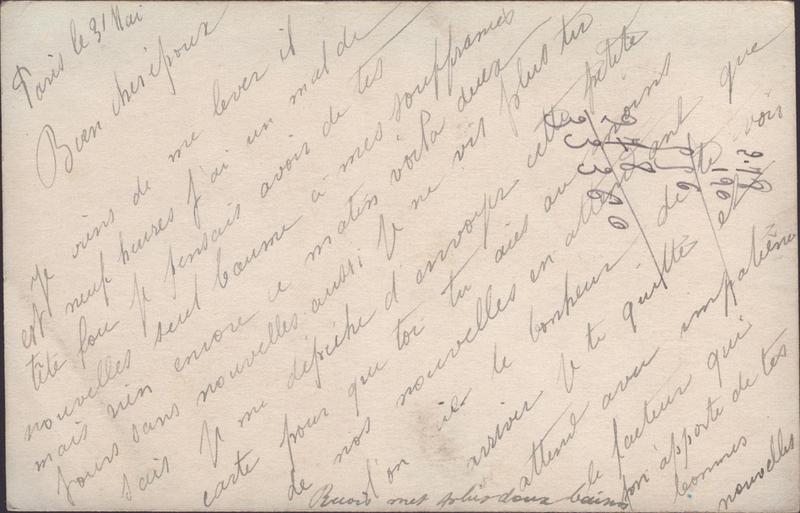 Paris le 31 Mai
Bien cher époux
Je viens de me lever il
est neuf heures j'ai un mal de
tête fou je pensais avoir de tes
nouvelles seul baume à mes souffrances
mais rien encore ce matin voilà deux
jours sans nouvelles aussi je ne vis plus tu
sais je me dépêche d'envoyer cette petite
carte pour que toi tu aies au moins
de nos nouvelles en attendant que
l'on ait le bonheur de te voir
arriver je te quitte et
attend avec impatience
le facteur qui
m'apporte de tes
bonnes
nouvelles
Reçois mes plus doux baisers
248
190
556
248
23360